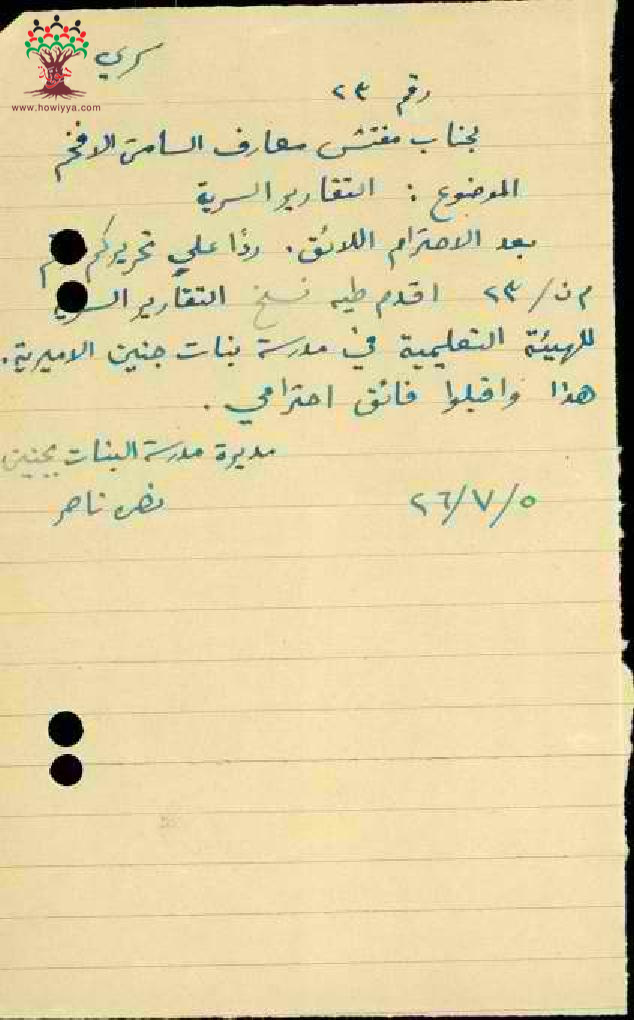 www.howiyya.com
سري
رقم ٢٣
لجناب مفتش معارف السامرة الافخم
الموضوع : التقارير السرية
بعد الاحترام اللائق. ردًا علي تحريركم رقم
م ن/ ٢٣ اقدم طيه نسخ التقارير السرية
للهيئة التعليمية في مدرسة بنات جنين الاميرية.
هذا واقبلوا فائق احترامي .
مديرة مدرسة البنات بجنين
٢٦/٧/٥
ناصر